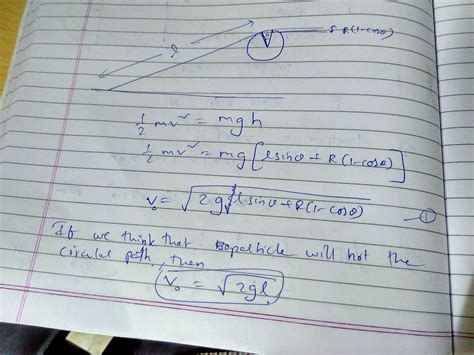 l
θ
R(1-cosθ)
1/2 mv² = mgh
1/2 mv² = mg [lsinθ + R(1-cosθ)]
v₀ = √2g{lsinθ + R(1-cosθ)} — ①
If we think that particle will not the
circular path, then
v₀ = √2gl